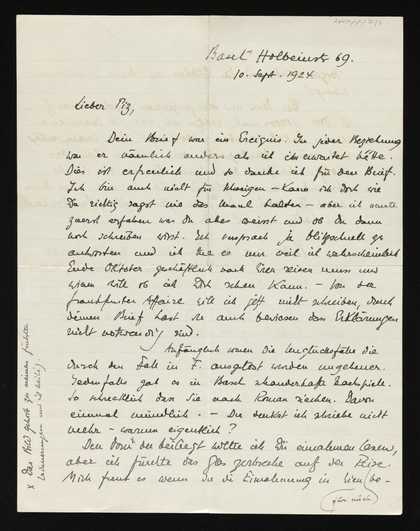 Basel Holbeinstr 69.
10. Sept. 1924
Lieber Piz,
Dein Brief war ein Ereignis. In jeder Beziehung
war er nämlich anders als ich ihn erwartet hätte.
Dies ist erfreulich und so danke ich für den Brief.
Ich bin auch nicht für – kann ich doch wie
Du richtig sagst nie das Maul halten – aber ich musste
zuerst erfahren was Du aber weisst und ob Du dann
noch schreiben wirst. Ich versprach ja blitzschnell zu
antworten und ich tue es nun weil ich wahrscheinlich
Ende Oktober geschäftlich nach reisen muss und
wissen will ob ich Dich sehen kann. – Von der
Frankfurter Affaire will ich jetzt nicht schreiben, durch
Deinen Brief hast Du auch bewiesen dass Erklärungen
nicht notwendig sind.
Anfänglich waren die Unglücksfälle die
durch den Fall in F. ausgelöst wurden ungeheuer.
Jedenfalls gab es in Basel schauderhafte Nachspiele.
So schrecklich dass Sie nach Roman riechen. Davon
einmal mündlich. – Du denkst ich schriebe nicht
mehr – warum eigentlich?
Den der beiliegt wollte ich Dir einrahmen lassen,
aber ich fürchte das Glas zerbräche auf der Reise.
Mich freut es wenn Du die Einrahmung in be-
(für mich)
x Das Bild gehört zu meinen
Erinnerungen und ist heilig